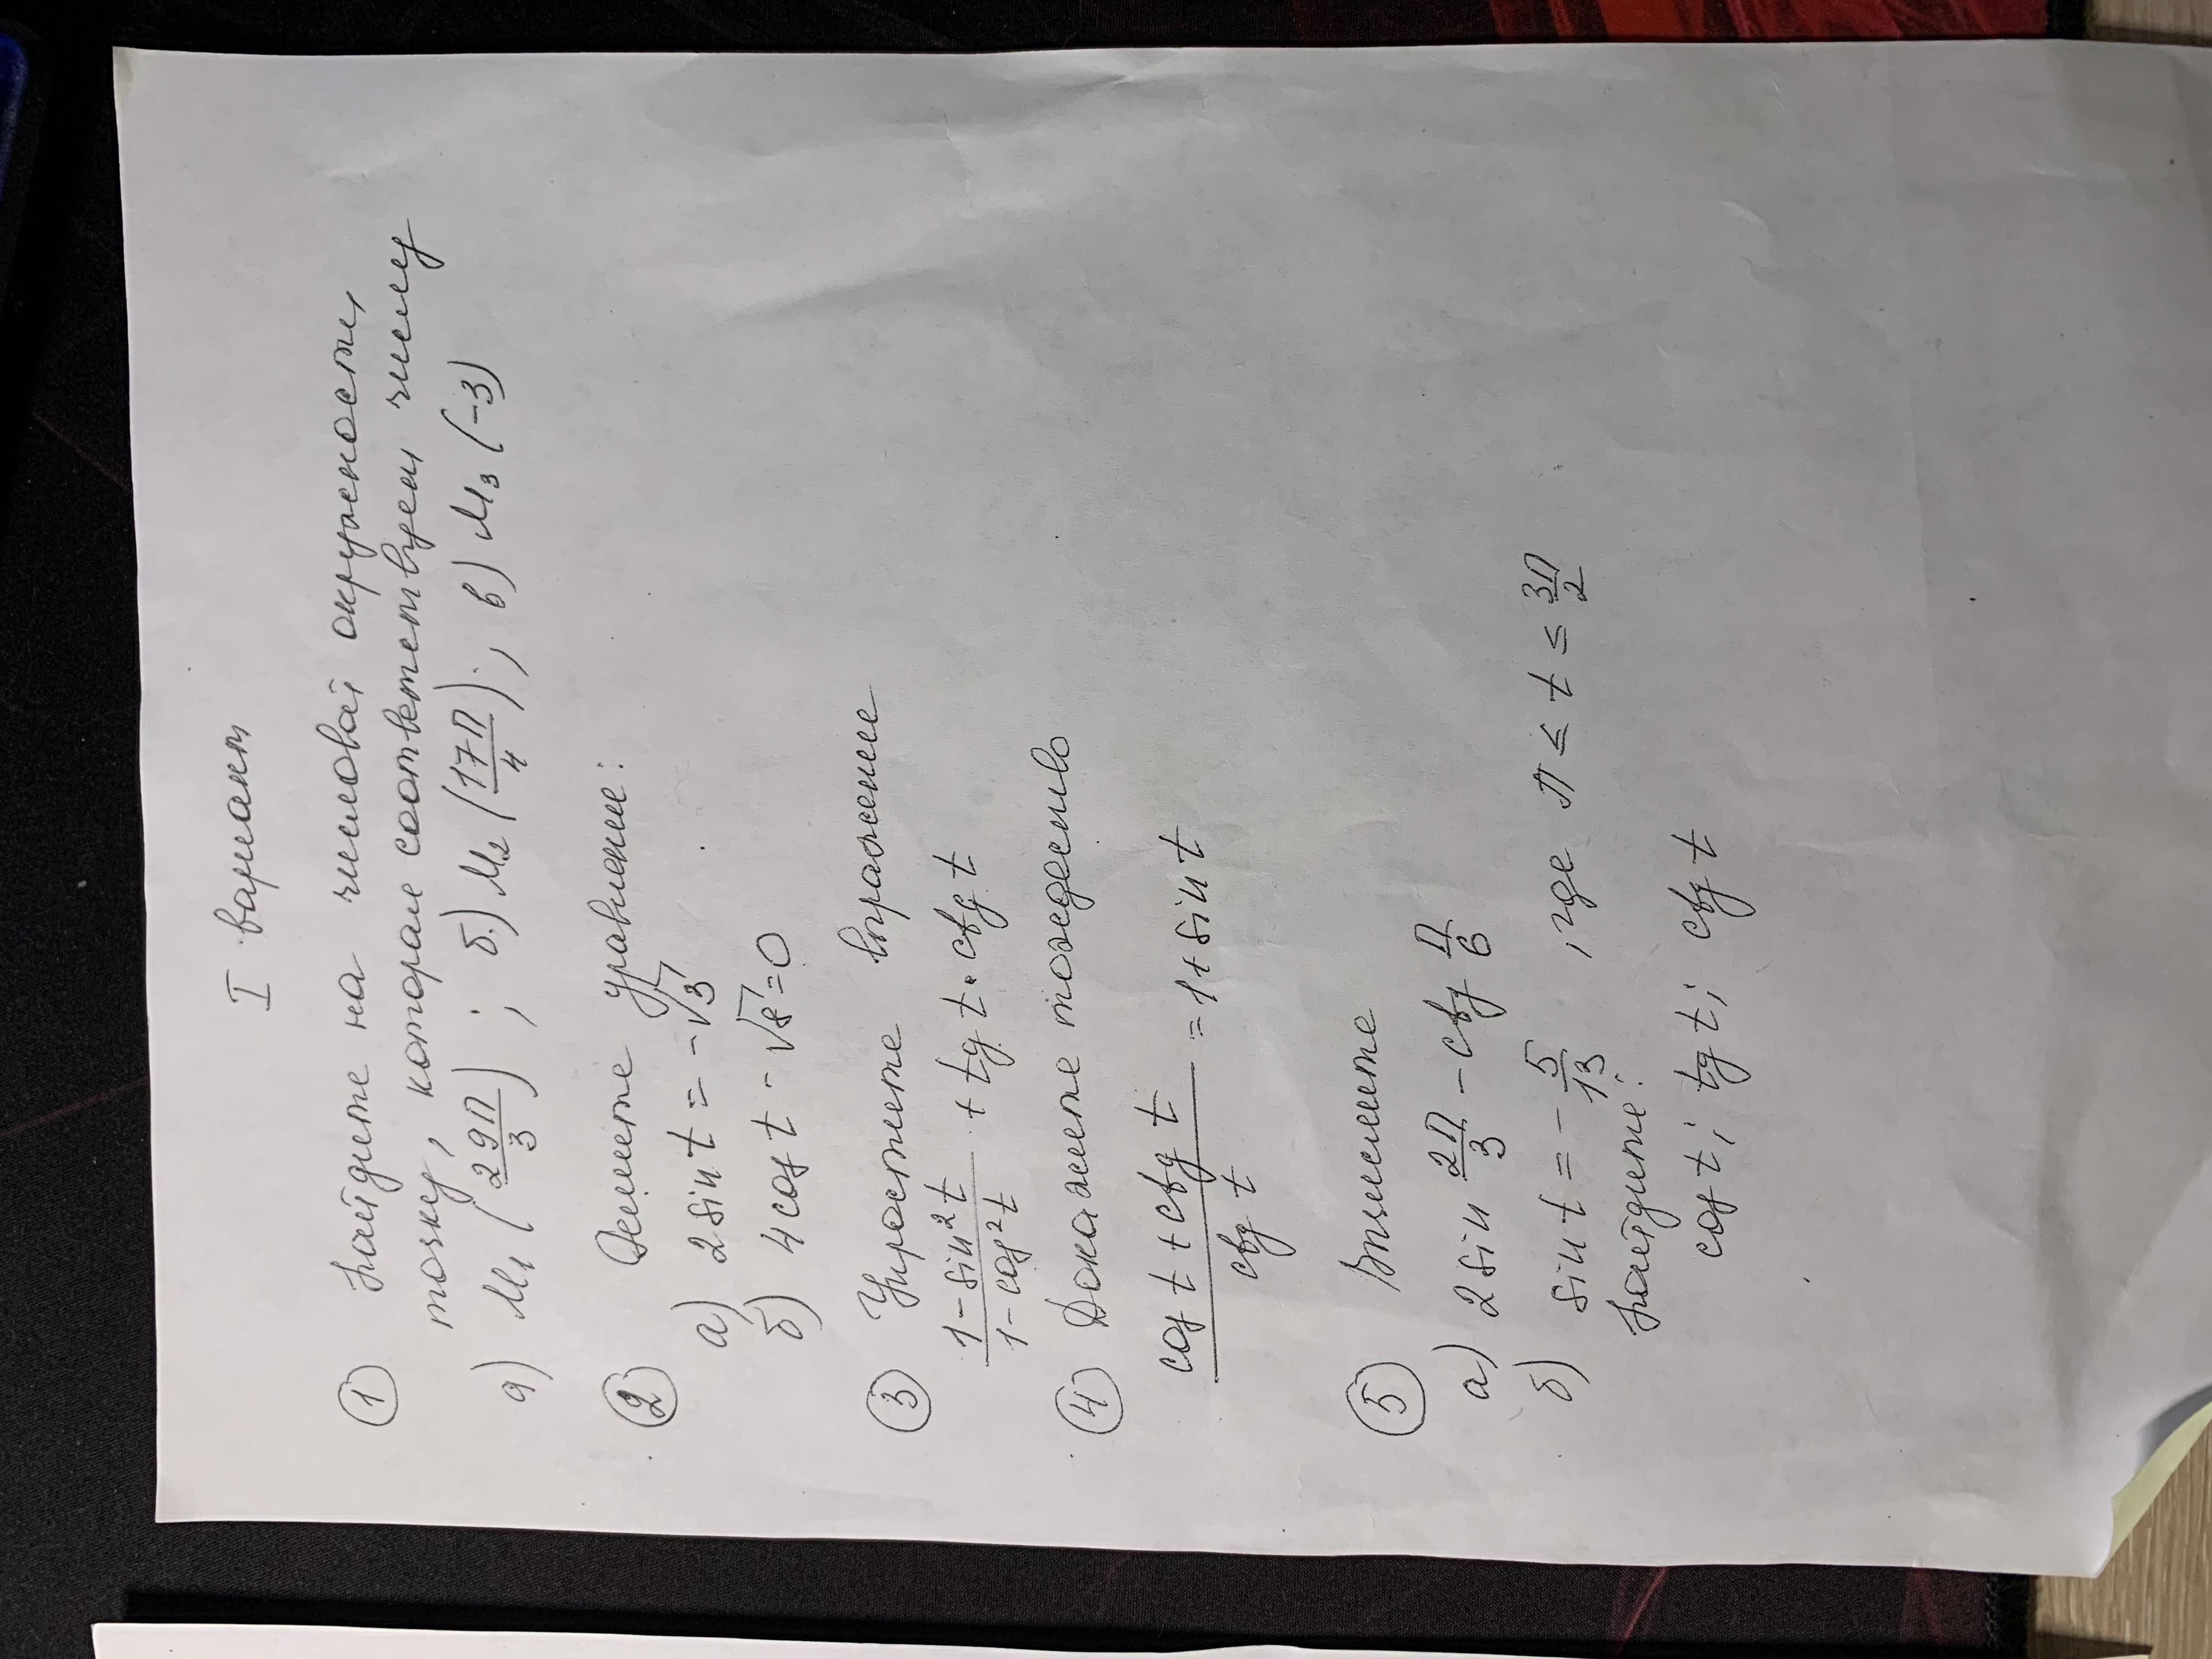 I вариант
① Найдите на числовой окружности
точку, которая соответствует числу
а) M₁ (29П/3); б) M₂ (17П/4); в) M₃ (-3)
② Решите уравнение:
а) 2 sin t = -√3
б) 4 cos t - √8 = 0
③ Упростите выражение
(1 - sin² t)/(1 - cos² t) + tg t · ctg t
④ Докажите тождество
(cos t + ctg t)/(ctg t) = 1 + sin t
⑤ Вычислите
а) 2 sin 2П/3 - ctg П/6
б) sin t = - 5/13, где π ≤ t ≤ 3П/2
Найдите:
cos t; tg t; ctg t